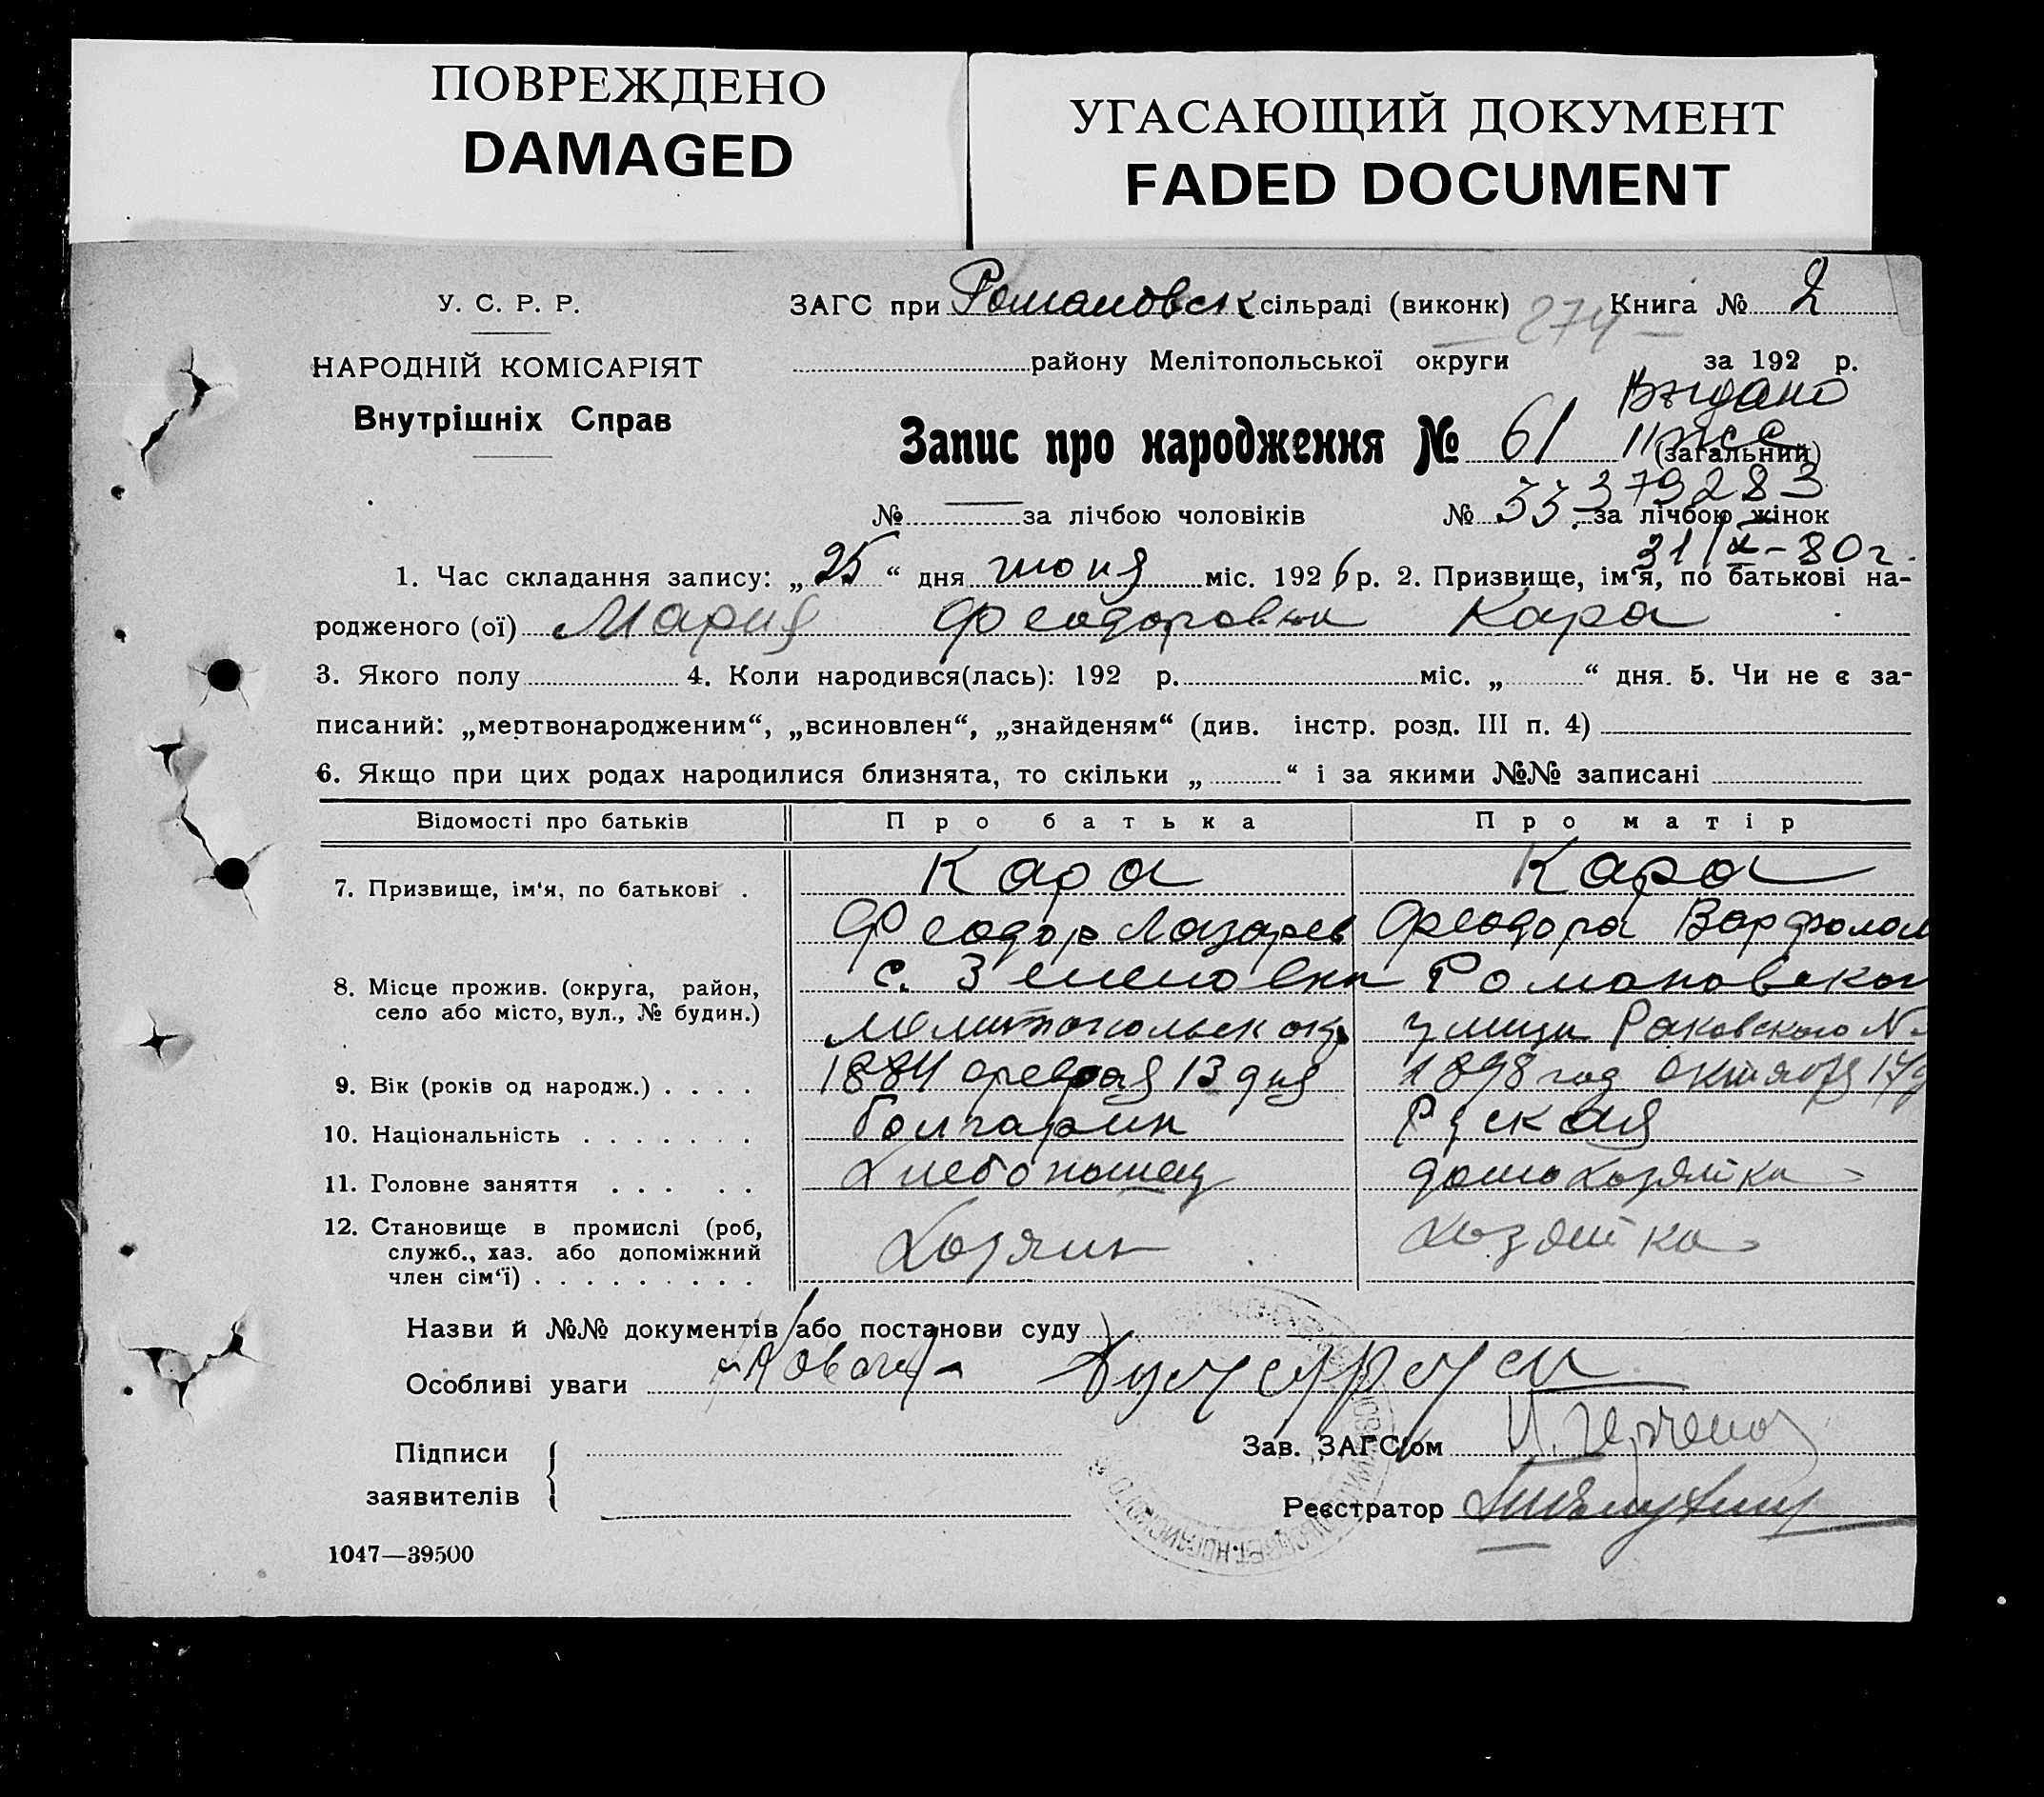 ПОВРЕЖДЕНО
DAMAGED
УГАСАЮЩИЙ ДОКУМЕНТ
FADED DOCUMENT
У. С. Р. Р.
НАРОДНІЙ КОМІСАРІЯТ
Внутрішніх Справ
ЗАГС при Романовск сільраді (виконк) 274 Книга № 2
району Мелітопольської округи за 192 р.
Выдано
Запис про народження № 61 (загальний)
379283
№ — за лічбою чоловіків № 33 за лічбою жінок
31/X-80г.
1. Час складання запису: „25“ дня июня міс. 1926 р. 2. Призвище, ім'я, по батькові на-
родженого (ої) Мария Феодоровна Кара
3. Якого полу 4. Коли народився(лась): 192 р. міс. „ “ дня. 5. Чи не є за-
писаний: „мертвонародженим“, „всиновлен“, „знайденям“ (див. інстр. розд. III п. 4)
6. Якщо при цих родах народилися близнята, то скільки „ “ і за якими №№ записані
Відомості про батьків Про батька Про матір
7. Призвище, ім'я, по батькові . Кара Кара
Феодор Лазарев Феодора Варфолом
8. Місце прожив. (округа, район, село або місто, вул., № будин.)
с. Романовской
Мелитопольск окр улици Раковского №
9. Вік (років од народж.) . . . . 1884 февраля 13 дня 1898 год октября
10. Національність . . . . . . . Болгарин Руская
11. Головне заняття . . . . . Хлебопашец домохозяйка
12. Становище в промислі (роб, служб., хаз. або допоміжний член сім'ї) . . . . . . . . . Хозяин хозяйка
Назви й №№ документів або постанови суду
Особливі уваги
Підписи
заявителів
Зав. ЗАГС'ом
Реєстратор
1047—39500